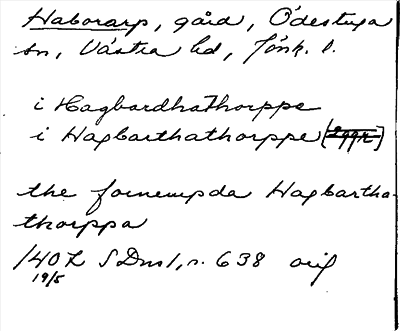 Haborarp, gård, Ödestuga
sn, Västra hd, Jönk. l.
i Hagbardhathorppe
i Hagbarthathorppe
the fornempda Hagbartha-
thorppa
1402 SDns 1, s. 638 orig
19/5